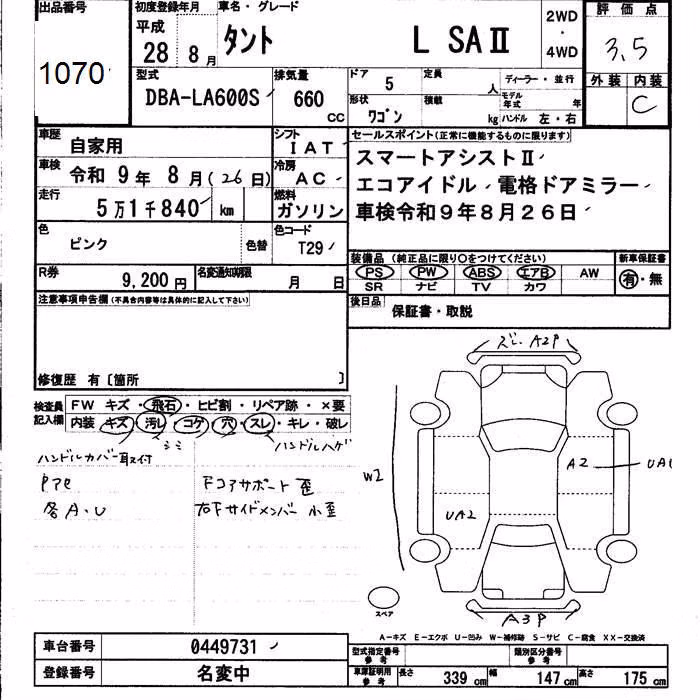 出品番号 初度登録年月 車名・グレード 2WD・4WD 評価点
平成 28 8月 タント L SAⅡ 3.5
1070 外装 内装 C
型式 排気量 ドア 5 定員 人 ディーラー・並行
DBA-LA600S 660 cc 形状 ワゴン 積載 kg モデル年式 年 ハンドル 左・右
車歴 自家用 シフト IAT セールスポイント(正常に機能するものに限ります)
車検 令和9年8月(26日) 冷房 AC スマートアシストⅡ
走行 5万1千840 km 燃料 ガソリン エコアイドル 電格ドアミラー
車検令和9年8月26日
色 ピンク 色替 色コード T29
装備品(純正品に限り○をつけてください) 新車保証書
R券 9,200円 名変通知期限 月 日 PS PW ABS エアB AW 有・無
SR ナビ TV カワ
注意事項申告欄(不具合内容等は具体的に記入して下さい) 後日品 保証書・取説
修復歴 有〔箇所 〕
ズレ、A2P
検査員記入欄 FW キズ・飛石・ヒビ割・リペア跡・×要
内装 キズ・汚レ・コゲ・穴・スレ・キレ・破レ
シミ ハンドルハゲ
ハンドルカバー取付
Fコアサポート 歪
各A・U 右Fサイドメンバー 小歪
W2 A2 UA1
UA2
スペア A3P
A-キズ E-エクボ U-凹み W-補修跡 S-サビ C-腐食 XX-交換済
車台番号 0449731 型式指定番号 参考 類別区分番号 参考
登録番号 名変中 車庫証明用 参考 長さ 339cm 幅 147cm 高さ 175cm